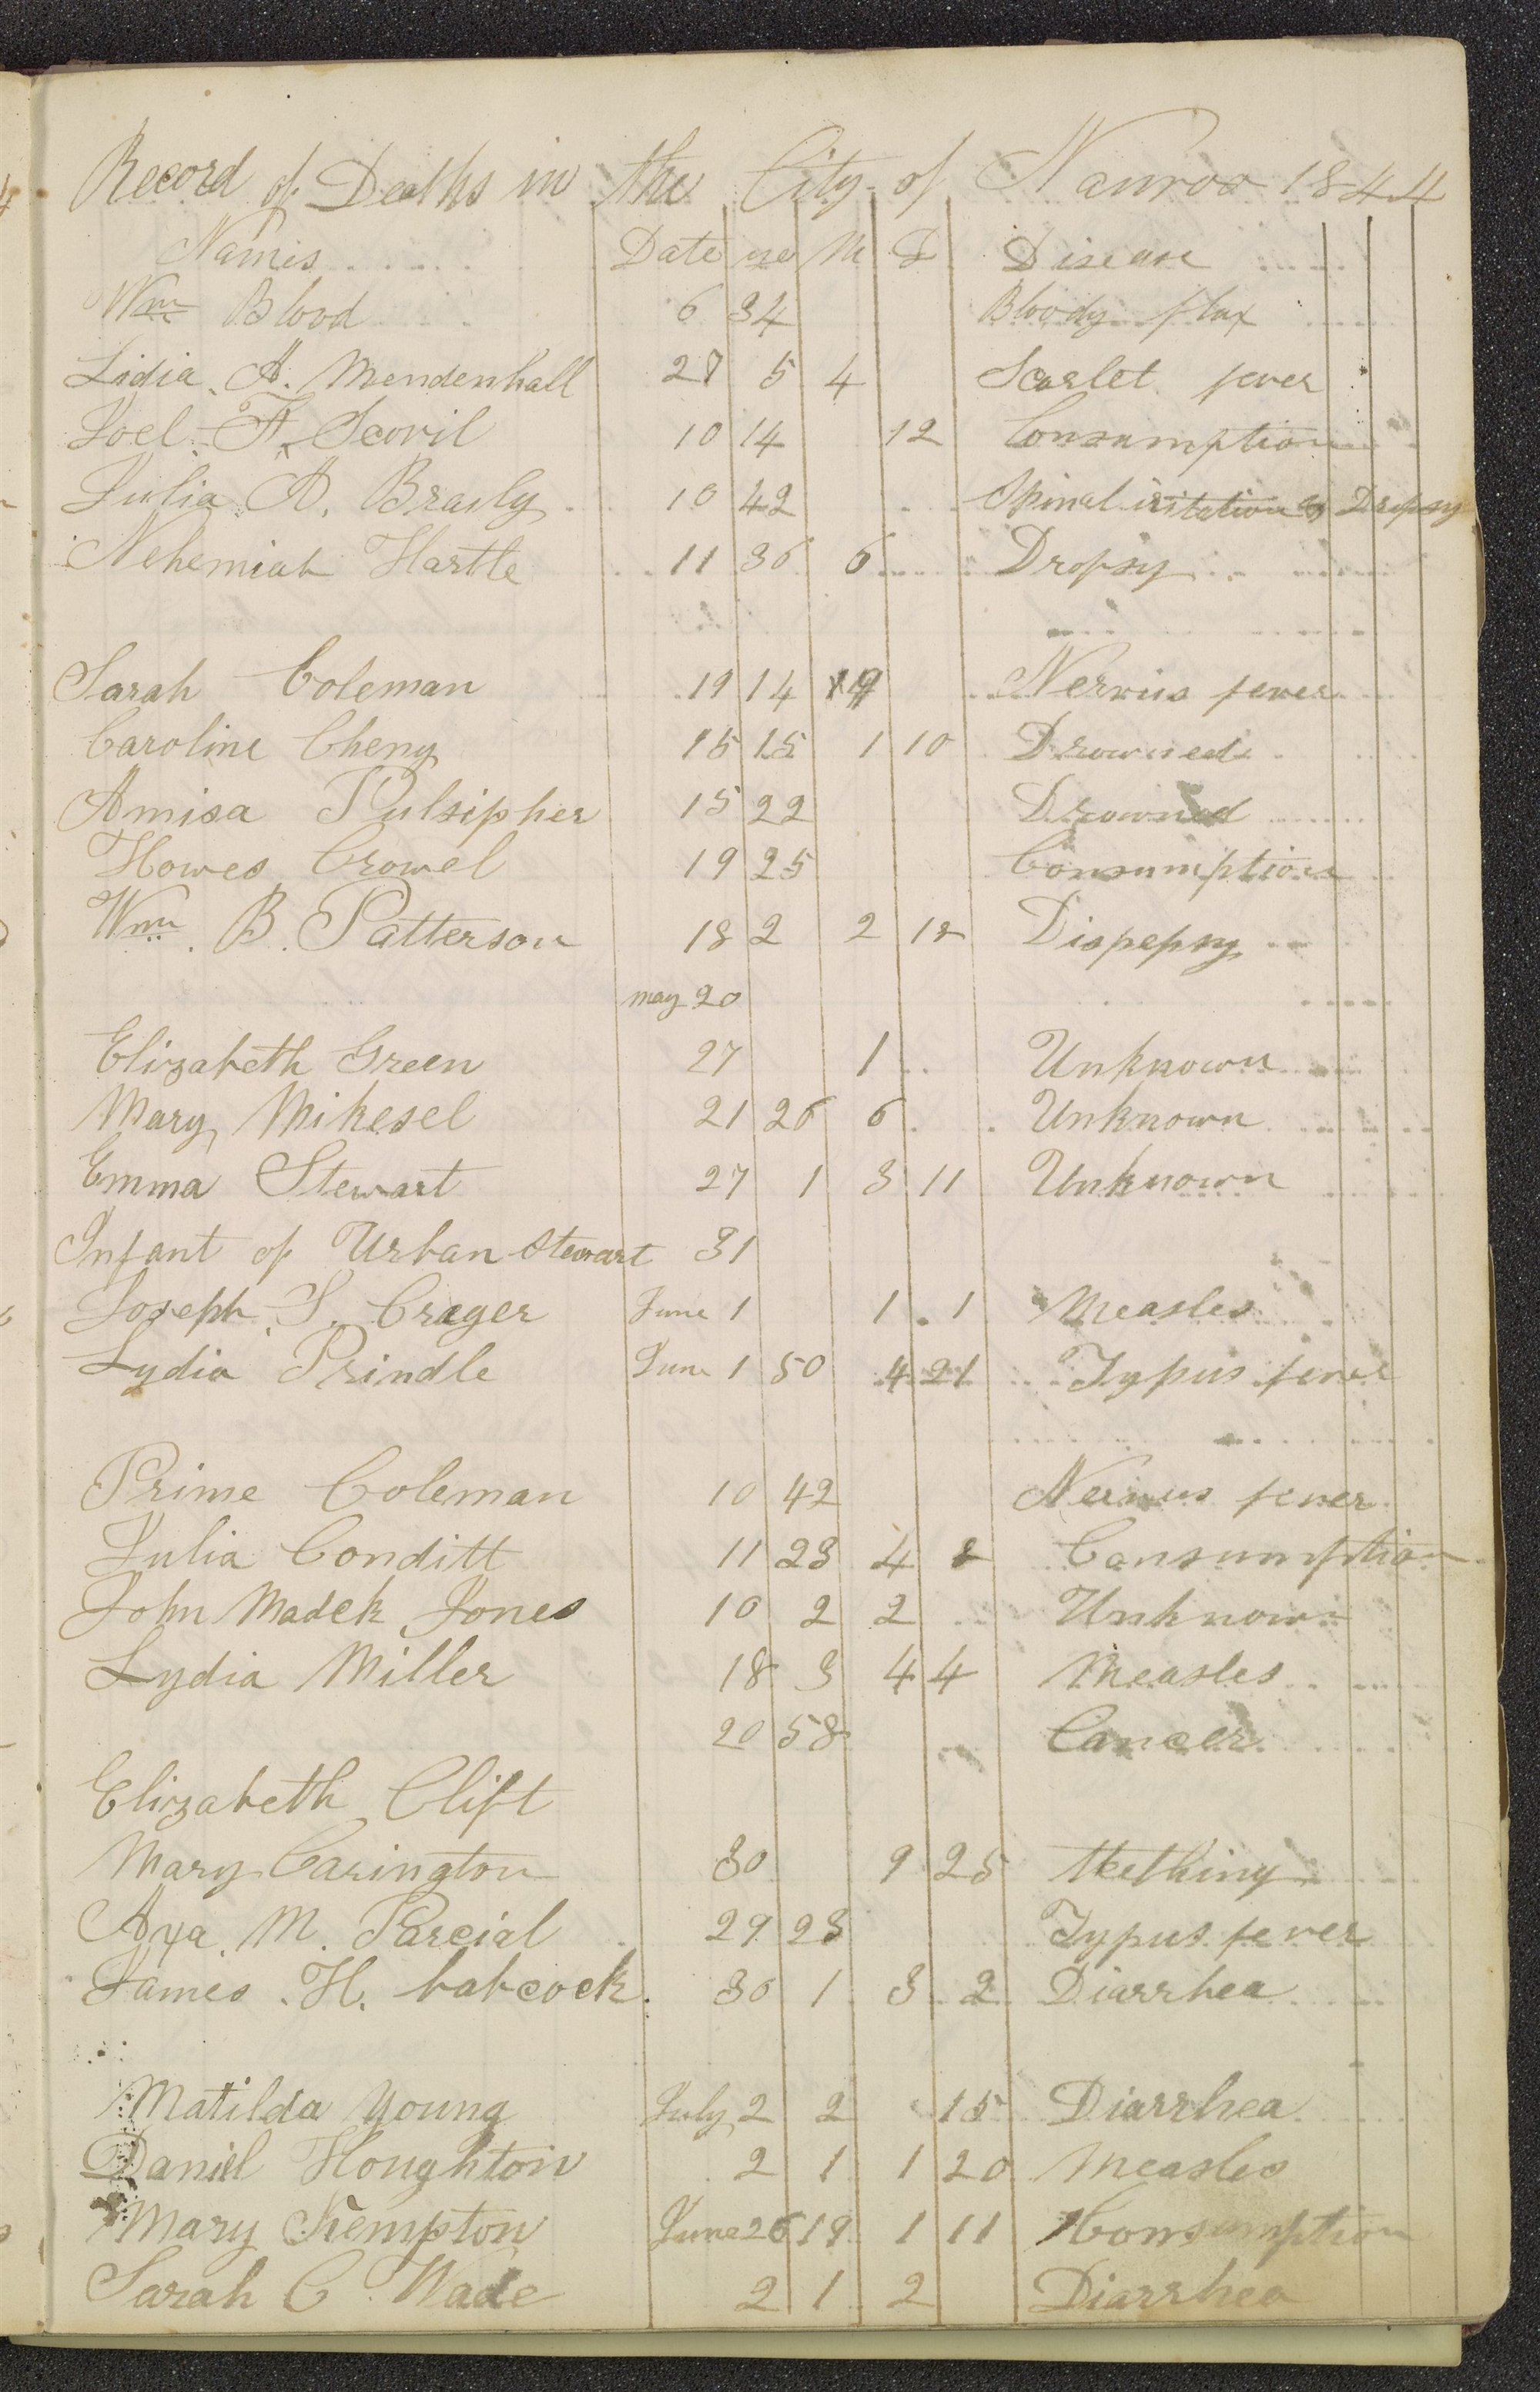 Record of Deaths in the City of Nauvoo 1844
Names Date M D Disease
Wm Blood 6 34 Bloody flux
Lidia A. Mendenhall 27 5 4 Scarlet fever
Joel F. Scovil 10 14 12 Consumption
Julia A. Braily 10 42 Spinal iritation & Dropsy
Nehemiah Hartle 11 36 6 Dropsy
Sarah Coleman 19 14 Nervius fever
Caroline Cheny 15 15 1 10 Drowned
Amisa Pulsipher 15 22 Drowned
Howes Crowel 19 25 Consumption
Wm. B. Patterson 18 2 2 18 Dispepsy
may 20
Elizabeth Green 27 1 Unknown
Mary Mikesel 21 26 6 Unknown
Emma Stewart 27 1 3 11 Unknown
Infant of Urban Stewart 31
Joseph S. Crager June 1 1 1 Measles
Lydia Prindle June 1 50 4 21 Typus fever
Prime Coleman 10 42 Nervus fever
Julia Conditt 11 23 4 8 Consumption
John Madek Jones 10 2 2 Unknown
Lydia Miller 18 3 4 4 Measles
20 58 Cancer
Elizabeth Clift
Mary Carington 30 9 25 teething
M. Parcial 29 23 Typus fever
James H. babcock. 30 1 3 2 Diarrhea
Matilda Young July 2 2 15 Diarrhea
Daniel Houghton 2 1 1 20 Measles
Mary Kempton June 26 19 1 11 Consumption
Sarah C Wade 2 1 2 Diarrhea